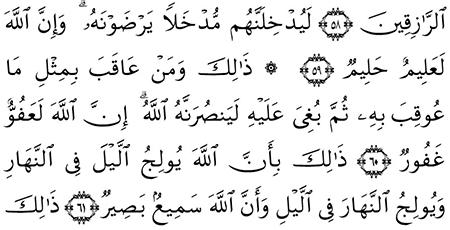 ٱلرَّٰزِقِينَ ﴿٥٨﴾ لَيُدْخِلَنَّهُم مُّدْخَلاً يَرْضَوْنَهُۥ ۗ وَإِنَّ ٱللَّهَ
لَعَلِيمٌ حَلِيمٌ ﴿٥٩﴾ ۞ ذَٰلِكَ وَمَنْ عَاقَبَ بِمِثْلِ مَا
عُوقِبَ بِهِۦ ثُمَّ بُغِىَ عَلَيْهِ لَيَنصُرَنَّهُ ٱللَّهُ ۗ إِنَّ ٱللَّهَ لَعَفُوٌّ
غَفُورٌ ﴿٦٠﴾ ذَٰلِكَ بِأَنَّ ٱللَّهَ يُولِجُ ٱلَّيْلَ فِى ٱلنَّهَارِ
وَيُولِجُ ٱلنَّهَارَ فِى ٱلَّيْلِ وَأَنَّ ٱللَّهَ سَمِيعٌۢ بَصِيرٌ ﴿٦١﴾ ذَٰلِكَ